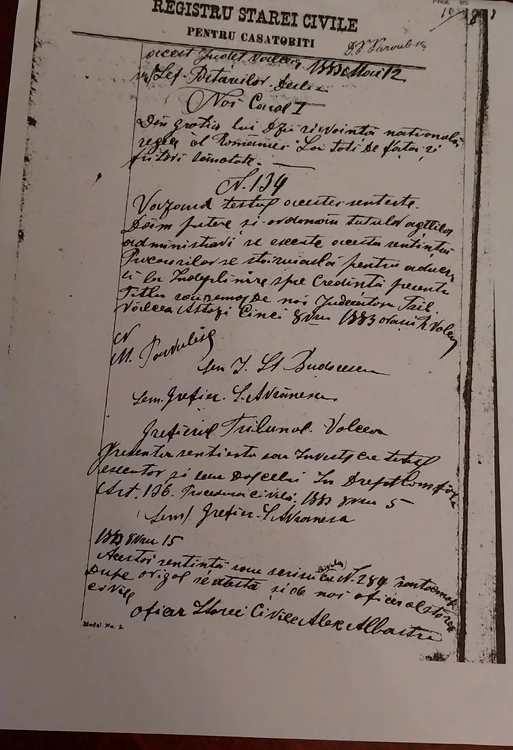 REGISTRU STAREI CIVILE
PENTRU CASATORITI
acest Judet Valcea 1883 Mai 12
Noi Carol I
Din gratia lui Dzeu si vointa nationala
rege al Romaniei La toti de fata si
viitori sanatate.
N. 134
Vazand testul acestei sentente
Dam putere si ordonam tutulor agentilor
administrativi se esecute acesta sentinta
Procurorilor se staruiasca pentru aducerea
ei la Indeplinire spre Credinta presenta
Titlu de noi Judecatoru Trib.
Valcea Astazi Cinci 1883 orasiu R Valcea
N
M.
Sem. I. St
Sem. Grefier. S. Avranescu
Grefierul Tribunal. Valcea
Presenta sentinta sau Investit cu titlul
esecutor si In Drept Conform
Art. 136. Procedura civila, 1883 5
(Sem) Grefier S. Avranescu
1883 15
Acesta sentinta sau scrisu cu N. 284 intocmai
Dupe origal se atesta si de noi oficer al starei
civile
oficer Starei Civile Alex Albastru
Model No. 2.